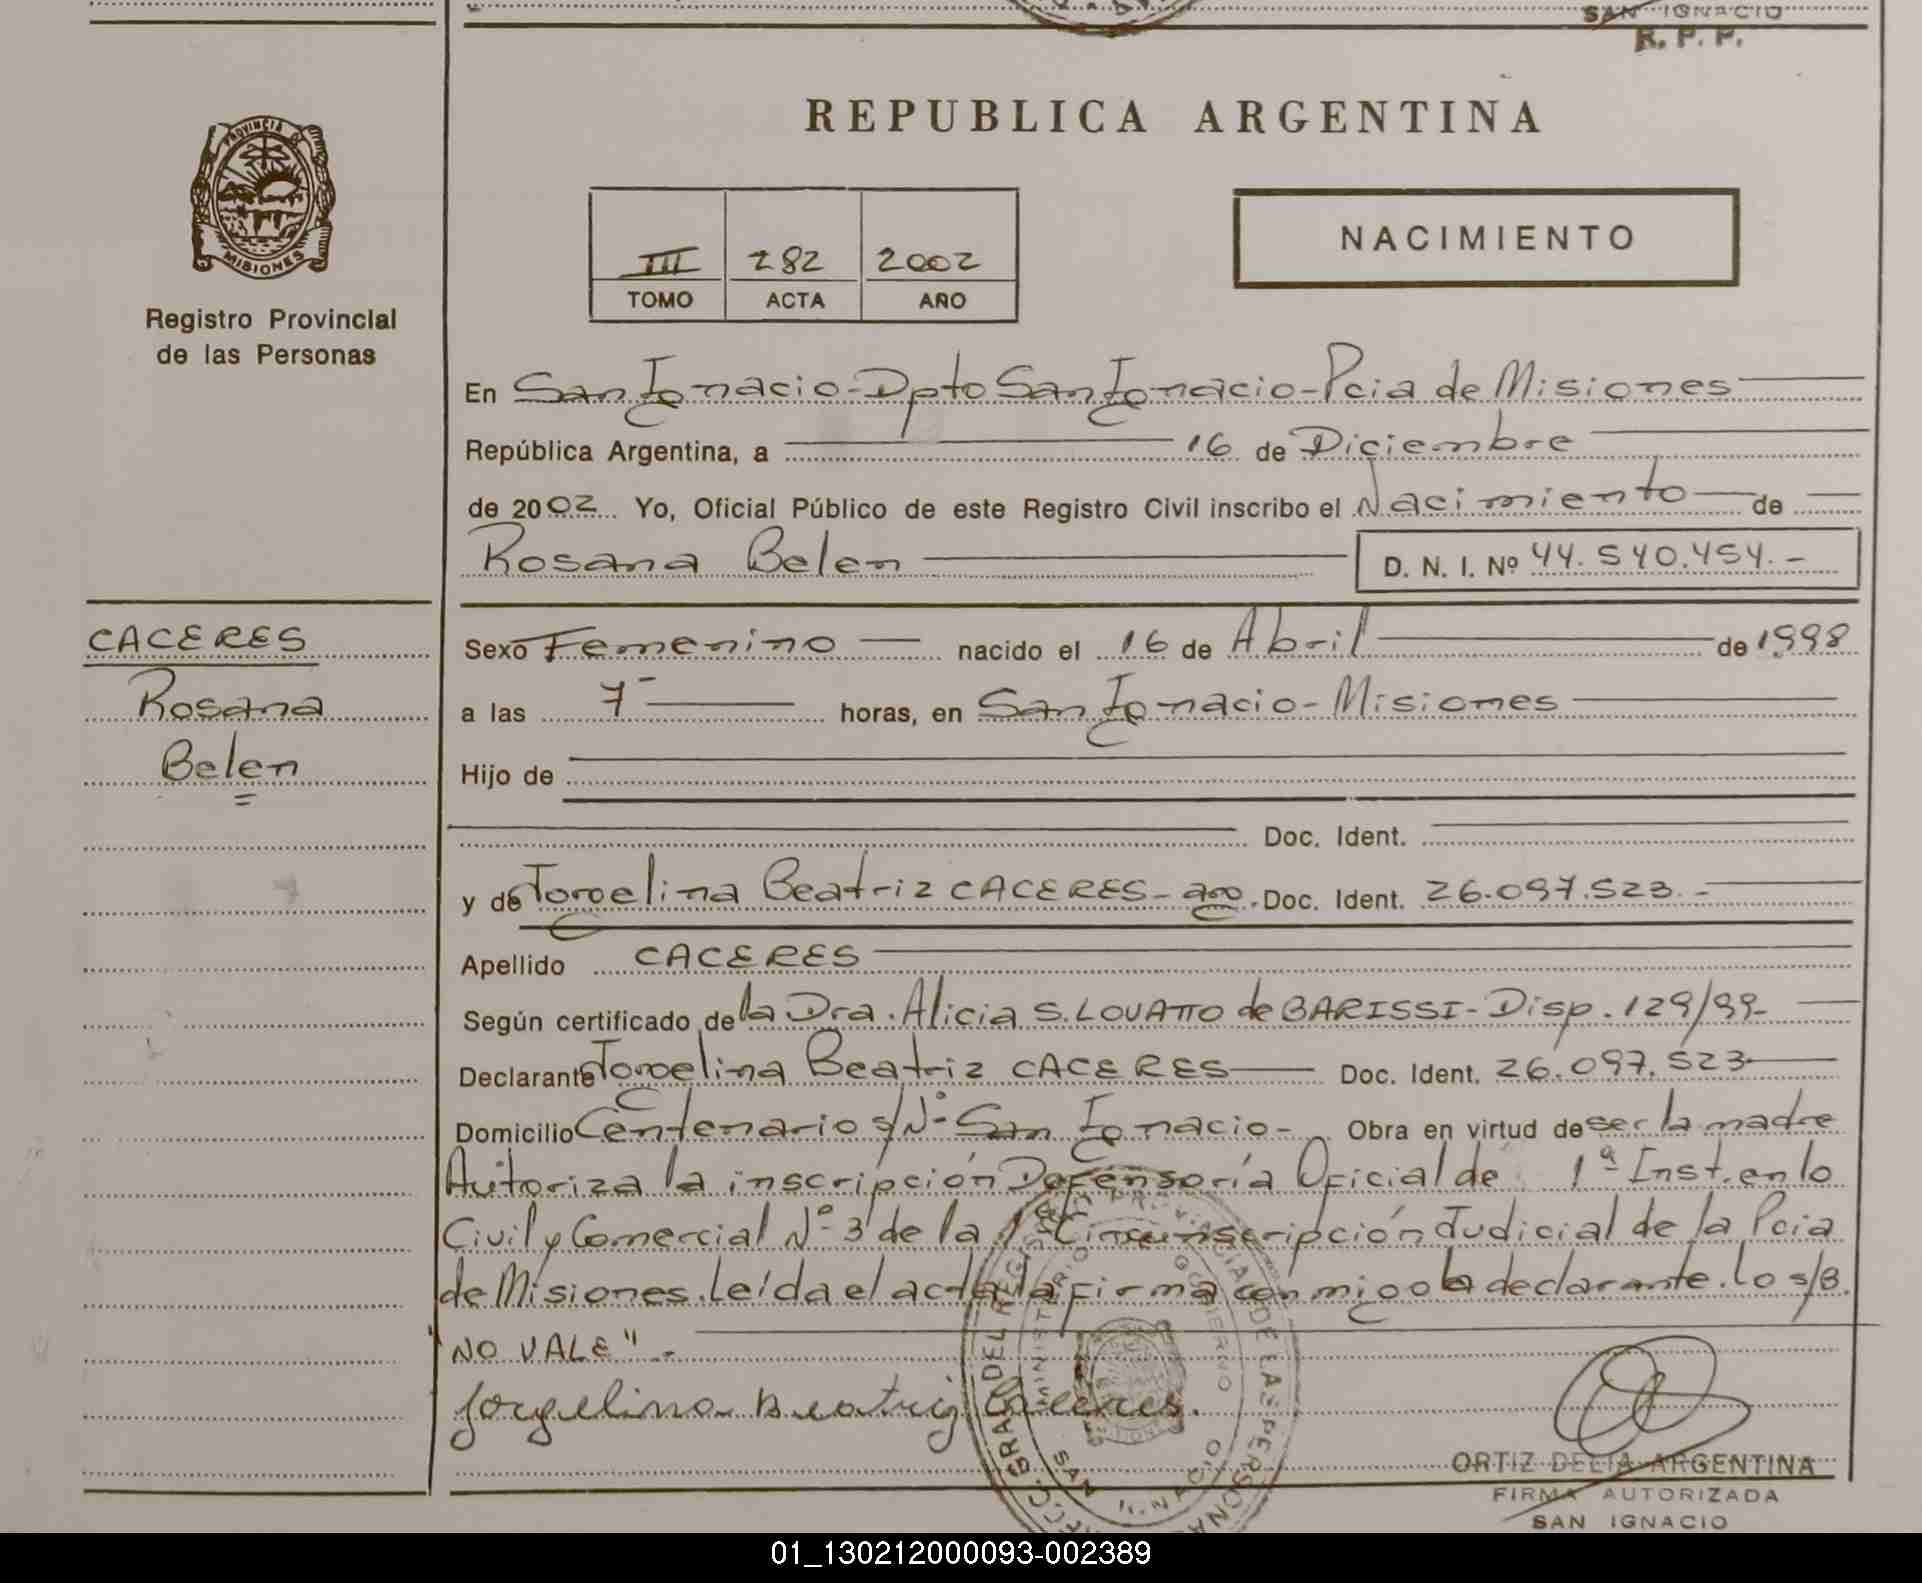 SAN IGNACIO
R. P. P.
REPUBLICA ARGENTINA
PROVINCIA DE
MISIONES
Registro Provincial
de las Personas
III 282 2002
TOMO ACTA AÑO
NACIMIENTO
En San Ignacio - Dpto San Ignacio - Pcia de Misiones
República Argentina, a 16 de Diciembre
de 2002 Yo, Oficial Público de este Registro Civil inscribo el Nacimiento de
Rosana Belen
D. N. I. Nº 44.540.454.-
CACERES
Rosana
Belen
Sexo Femenino nacido el 16 de Abril de 1998
a las 7 horas, en San Ignacio - Misiones
Hijo de
Doc. Ident.
y de Jorgelina Beatriz CACERES - arg. Doc. Ident. 26.097.523.-
Apellido CACERES
Según certificado de la Dra. Alicia S. LOVATTO de BARISSI - Disp. 129/99-
Declarante Jorgelina Beatriz CACERES Doc. Ident. 26.097.523
Domicilio Centenario s/Nº San Ignacio - Obra en virtud de ser la madre
Autoriza la inscripción Defensoría Oficial de 1ª Inst. en lo
Civil y Comercial Nº 3 de la 1ª Circunscripción Judicial de la Pcia
de Misiones. Leída el acta la firma conmigo la declarante. lo s/B.
"NO VALE".-
Jorgelina Beatriz Caceres.
MINISTERIO GOBIERNO
SAN IGNACIO
ORTIZ DELIA ARGENTINA
FIRMA AUTORIZADA
SAN IGNACIO
01_130212000093-002389